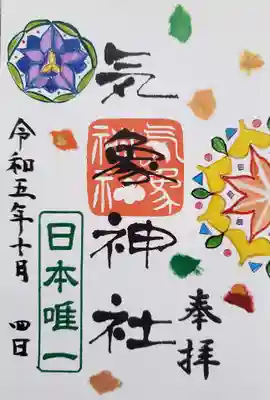 奉拝
気象神社
気象神社
日本唯一
令和五年十月 四日